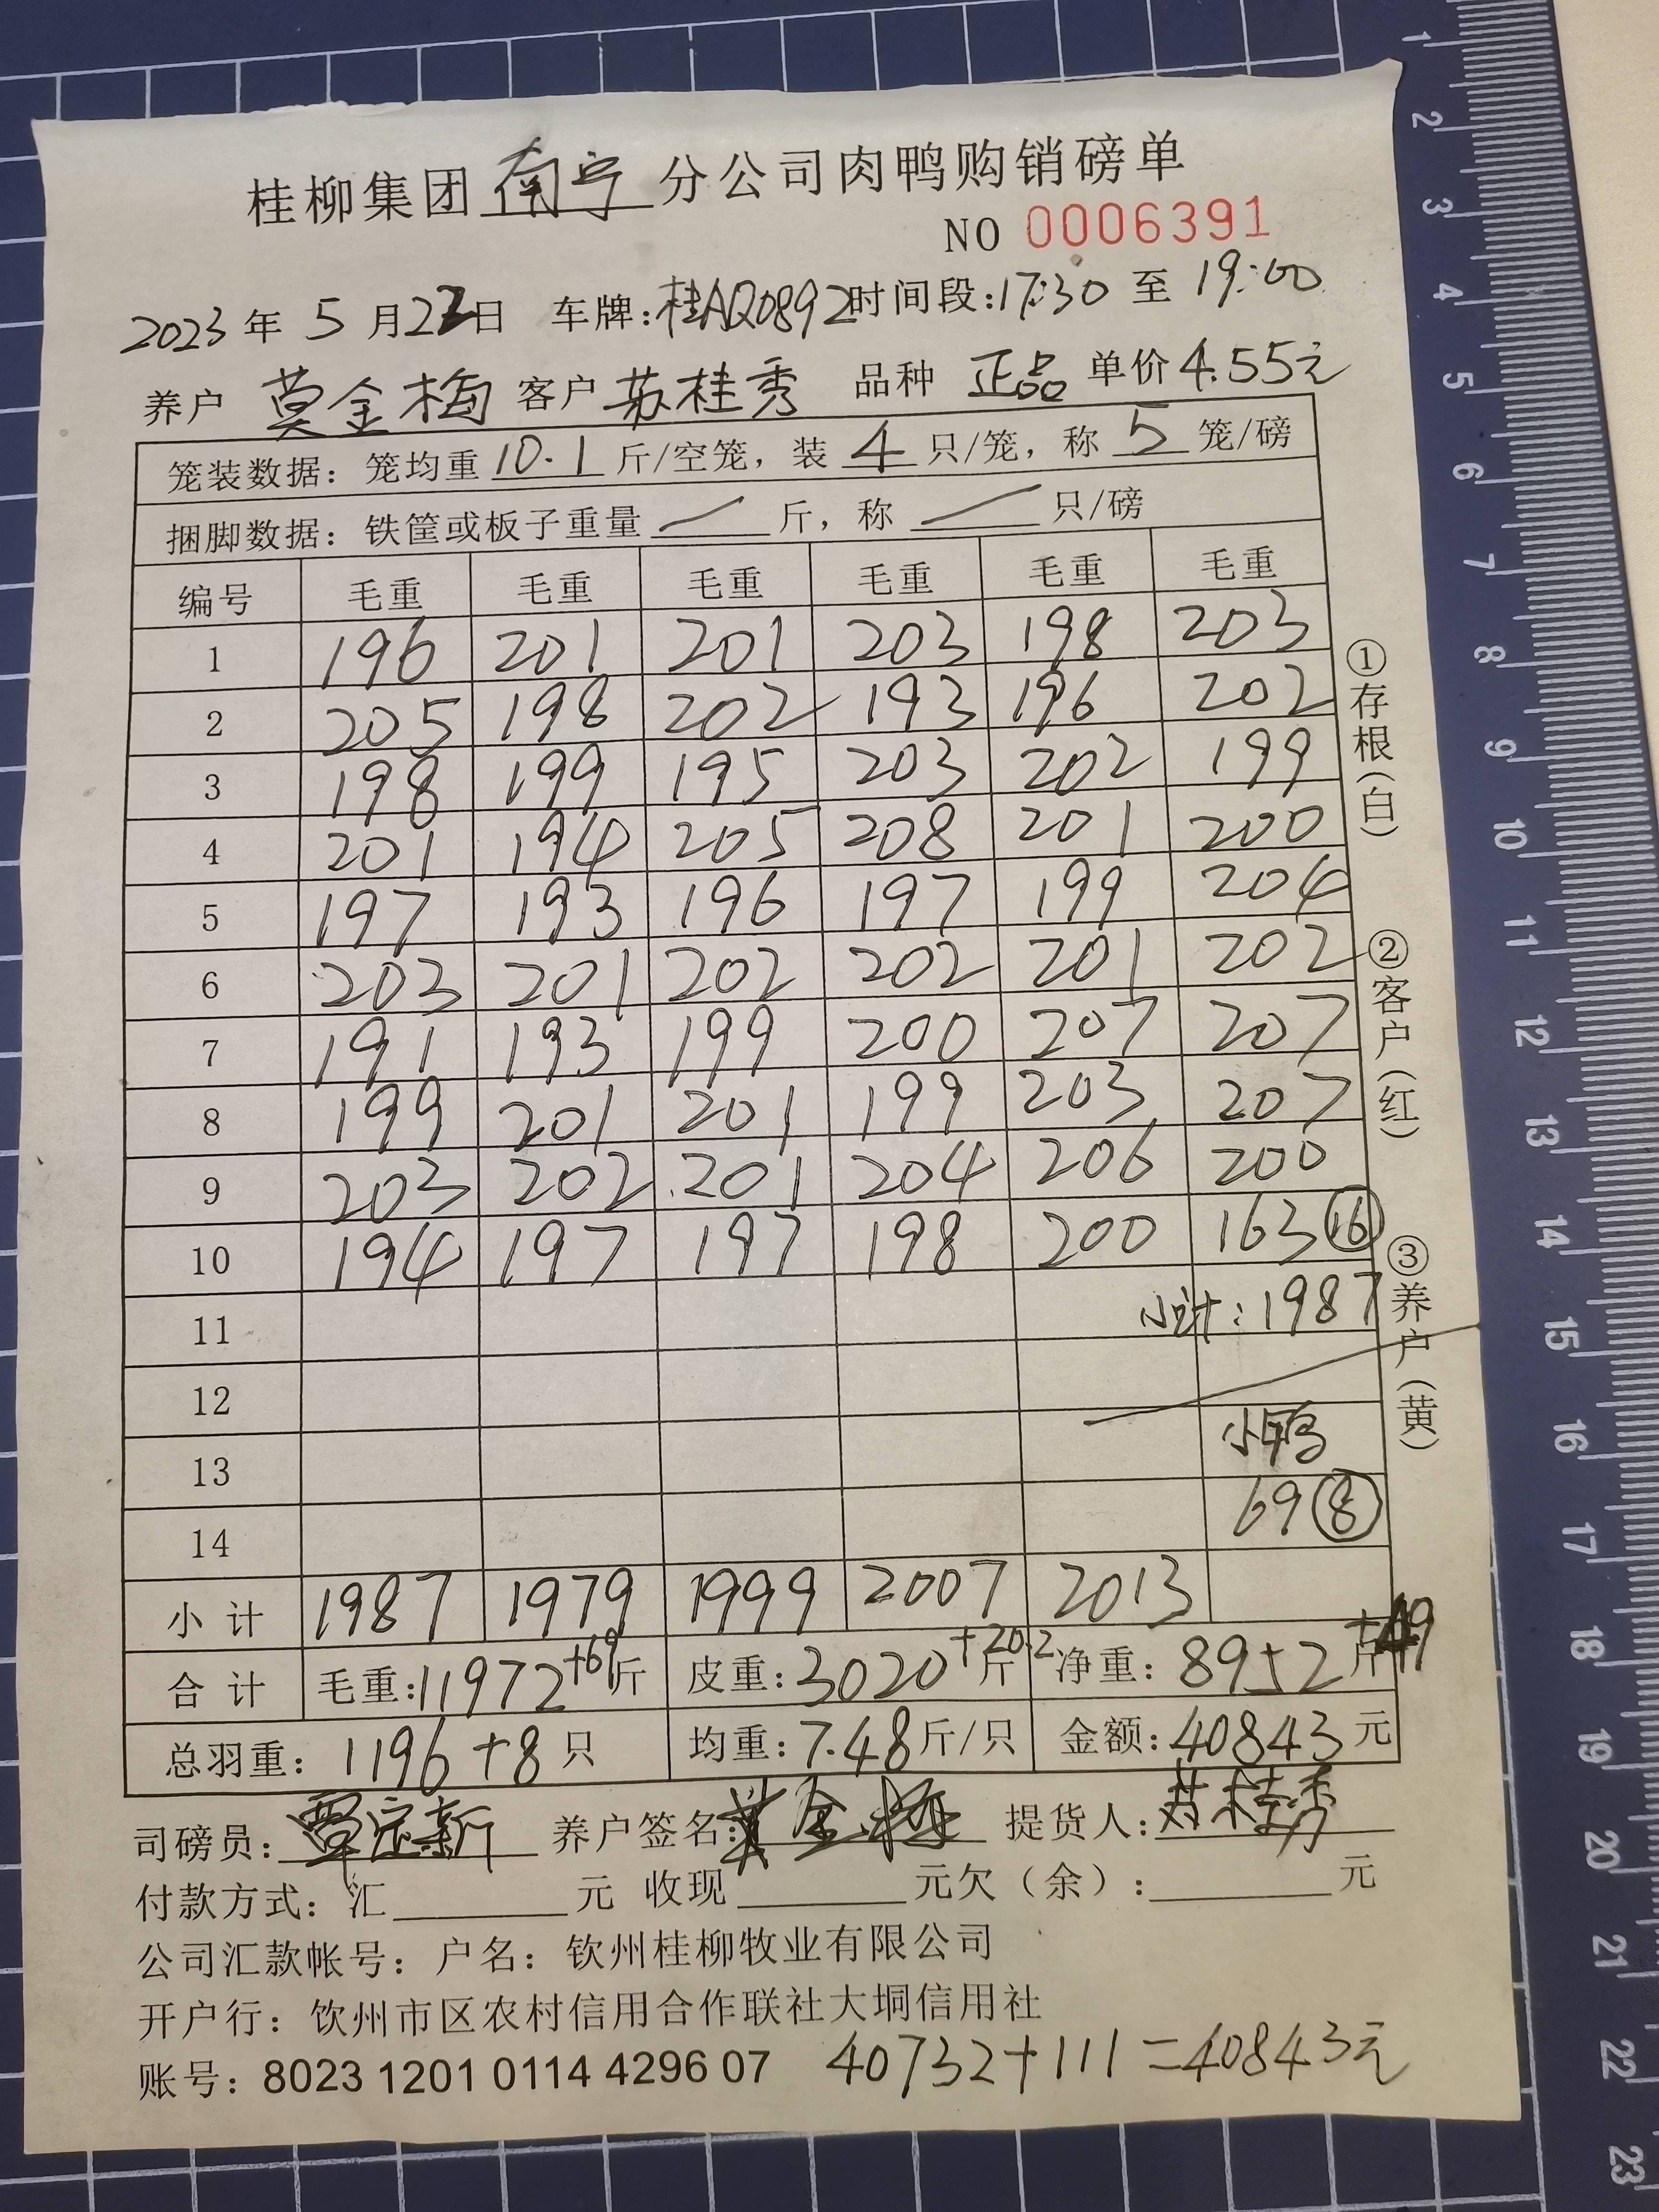 桂柳集团南宁分公司肉鸭购销磅单
NO 0006391
2023年 5 月22日 车牌:桂AQ0892时间段:17:30 至 19:00
养户 莫金梅 客户 苏桂秀 品种 正品 单价4.55元
笼装数据: 笼均重 10.1 斤/空笼, 装 4 只/笼, 称 5 笼/磅
捆脚数据: 铁筐或板子重量 / 斤, 称 / 只/磅
编号 毛重 毛重 毛重 毛重 毛重 毛重
1 196 201 201 203 198 203
2 205 198 202 193 196 202
3 198 199 195 203 202 199
4 201 194 205 208 201 200
5 197 193 196 197 199 204
6 203 201 202 202 201 202
7 191 193 199 200 207 207
8 199 201 201 199 203 207
9 203 202 201 204 206 200
10 194 197 197 198 200 163 ⑯
11 小计: 1987
12
13 小鸭
14 69 ⑧
小 计 1987 1979 1999 2007 2013
合 计 毛重:11972+69斤 皮重: 3020+20.2斤 净重: 8952斤+49
总羽重: 1196+8 只 均重: 7.48斤/只 金额: 40843 元
司磅员: 覃宗新 养户签名: 莫金梅 提货人: 苏桂秀
付款方式: 汇 元 收现 元欠（余）: 元
公司汇款帐号: 户名: 钦州桂柳牧业有限公司
开户行: 钦州市区农村信用合作联社大垌信用社
账号: 8023 1201 0114 4296 07 40732+111=40843元
①存根(白)
②客户(红)
③养户(黄)
1
2
3
4
5
6
7
8
9
10
11
12
13
14
15
16
17
18
19
20
21
22
23